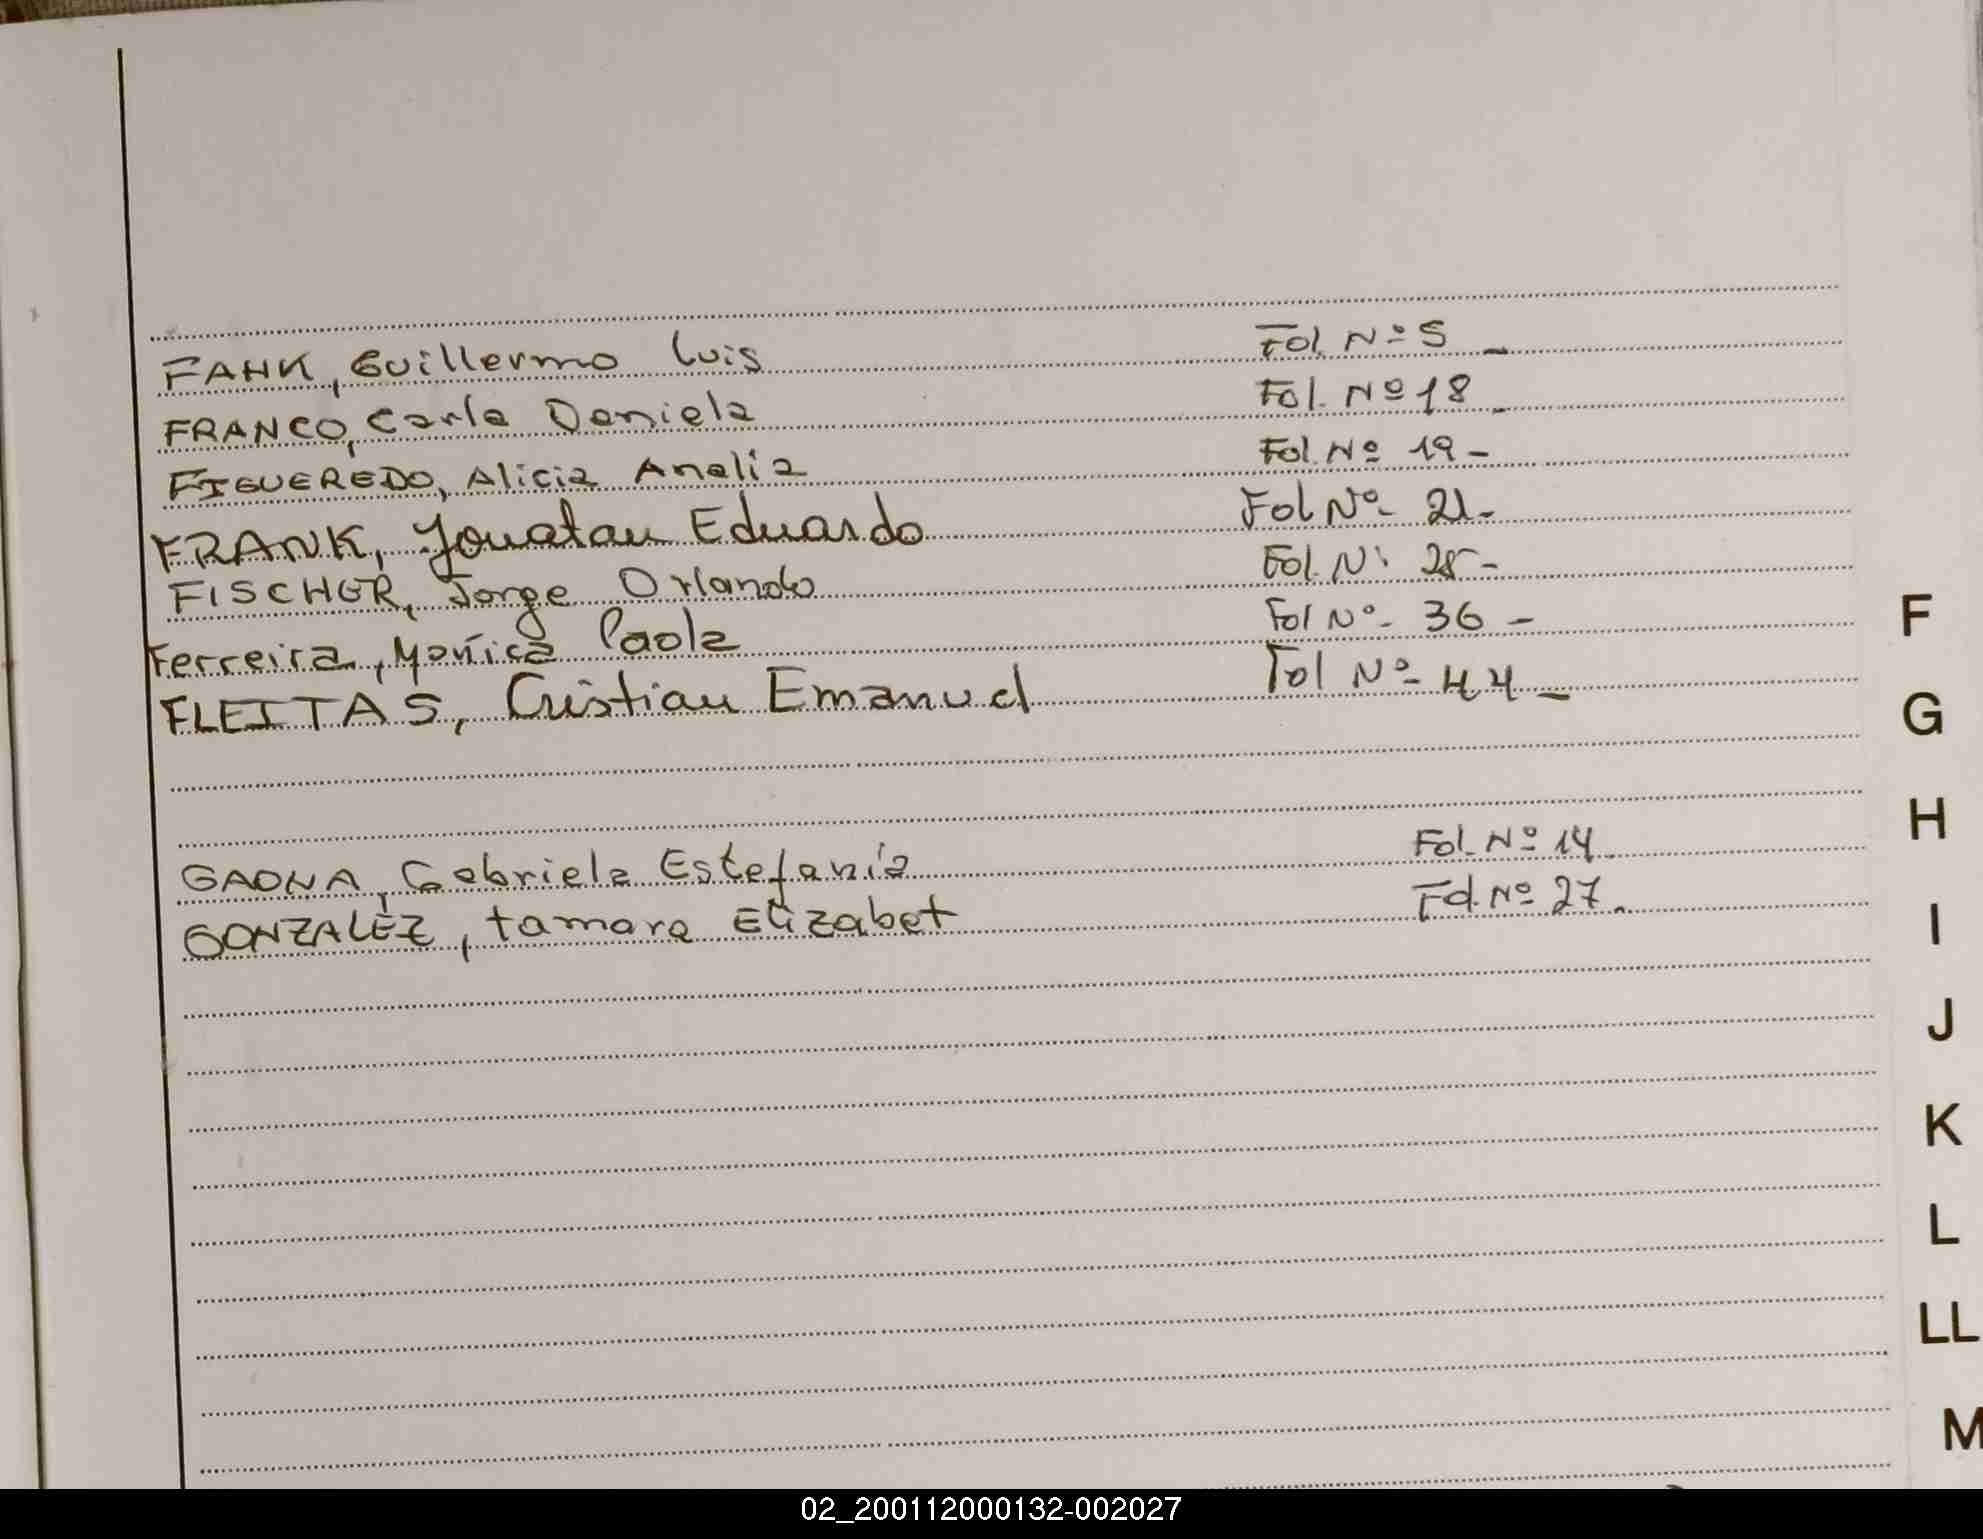 FAHK, Guillermo Luis Fol. Nº 5 -
FRANCO, Carla Daniela Fol. Nº 18 -
FIGUEREDO, Alicia Analia Fol. Nº 19 -
FRANK, Jonatan Eduardo Fol Nº 21 -
FISCHER, Jorge Orlando Fol. Nº 25 -
Ferreira, Mónica Paola Fol Nº 36 -
FLEITAS, Cristian Emanuel Fol Nº 44 -
GAONA, Gabriela Estefanía Fol. Nº 14.
GONZALEZ, tamara Elizabet Fol. Nº 27.
F
G
H
I
J
K
L
LL
M
02_200112000132-002027